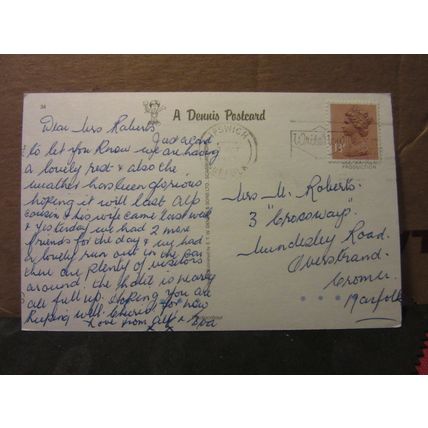 34
A Dennis Postcard
IPSWICH
SUFFOLK
PRODUCTION
Dear Mrs Roberts
Just a card
to let you know we are having
a lovely rest & also the
weather has been glorious
hoping it will last. Alfs
cousin & his wife came last week
& yesterday we had 2 more
friends for the day & we had
a lovely run out in the car
there are plenty of visitors
around. the hotel is nearly
all full up. Hoping you are
keeping well. Cheerio for now
Love from Alf &
Mrs M. Roberts.
3 "Crossways"
Mundesley Road.
Overstrand.
Cromer.
Norfolk